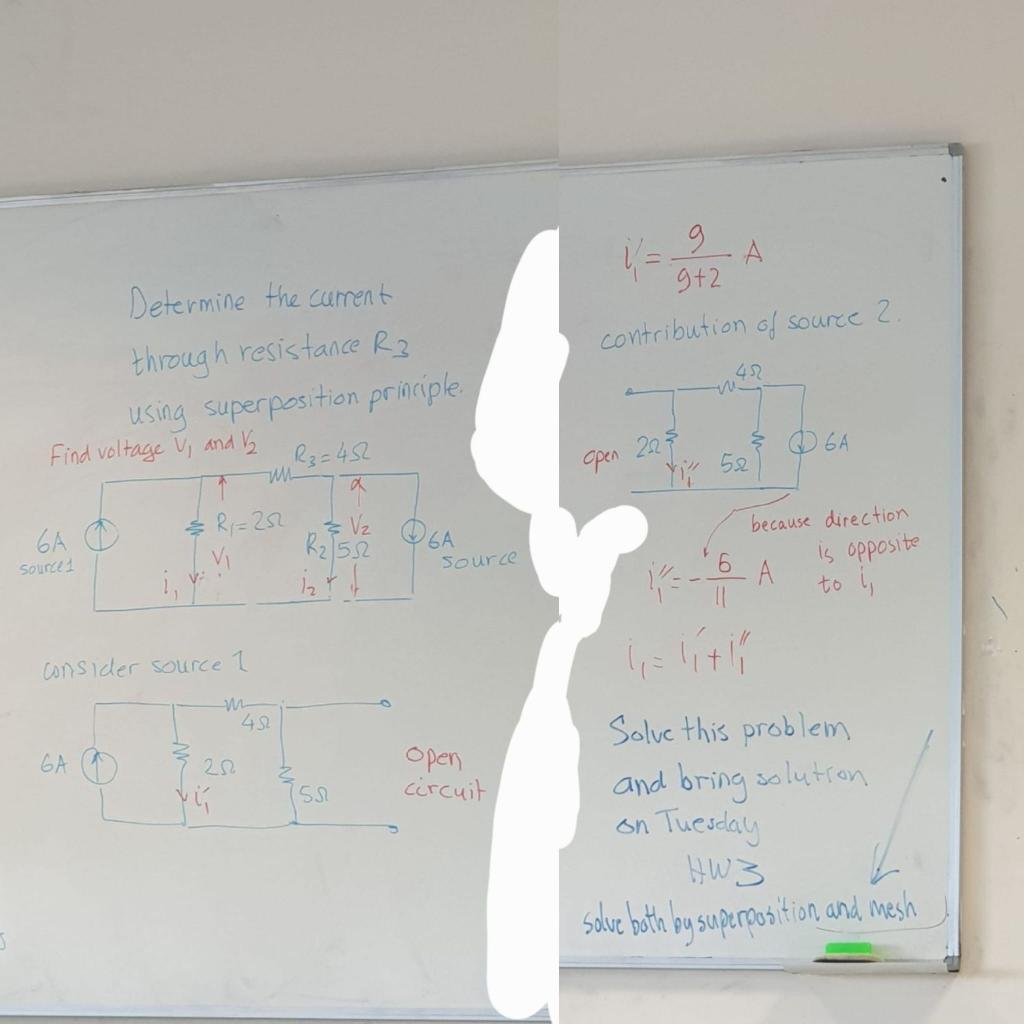 Determine the current
through resistance R3
using superposition principle.
Find voltage V1 and V2
R3=4Ω
6A
source1
R1=2Ω
V1
i1
R2
5Ω
V2
i2
6A
source
consider source 1
4Ω
6A
2Ω
i1'
5Ω
Open
circuit
i1' = 9/(9+2) A
contribution of source 2.
4Ω
open
2Ω
i1''
5Ω
6A
because direction
is opposite
to i1
i1'' = -6/11 A
i1 = i1' + i1''
Solve this problem
and bring solution
on Tuesday
HW3
solve both by superposition and mesh